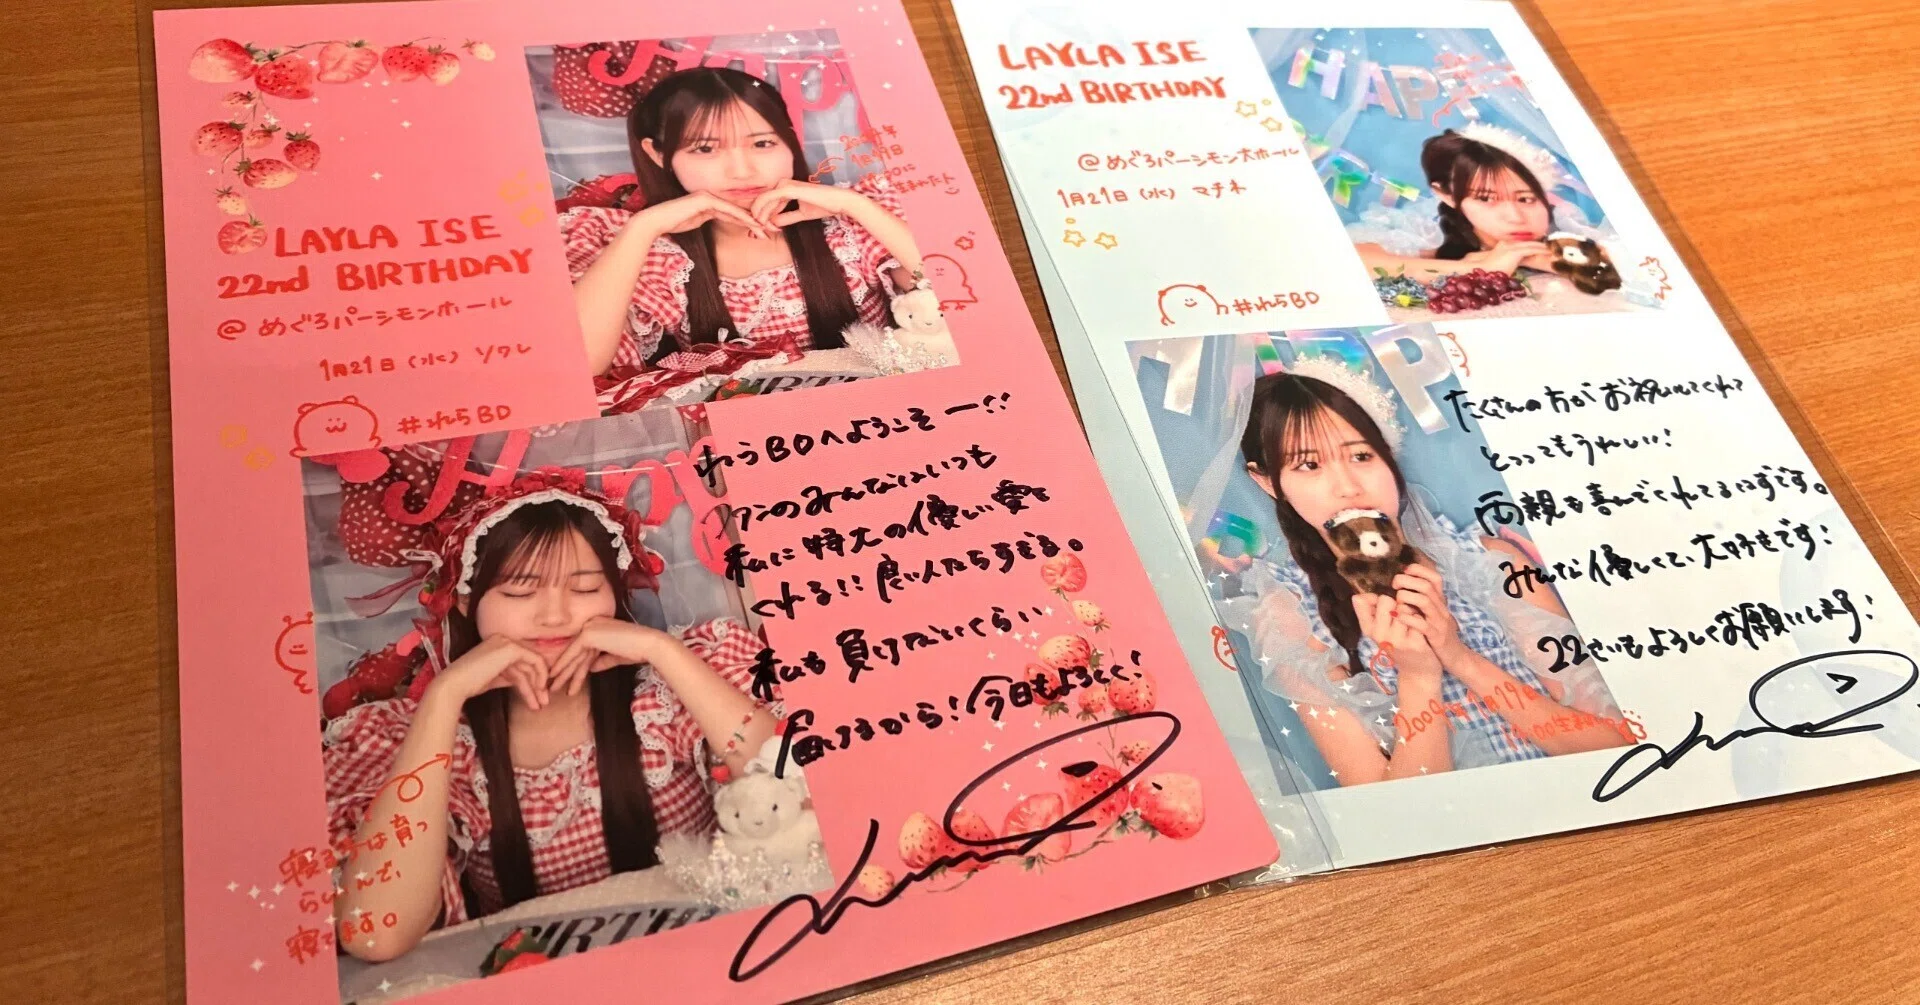 LAYLA ISE
22nd BIRTHDAY
@ めぐろパーシモンホール
1月21日 (水) ソワレ
#れらBD
1月19日
生まれたよ
れらBDへようこそー!!
ファンのみんなはいつも
私に特大の優しい愛を
くれる!! 良い人たちすぎる。
私も負けないくらい
届けるから! 今日もよろしく!
寝る子は育つ
らしいんで、
寝てます。
BIRTH
LAYLA ISE
22nd BIRTHDAY
@ めぐろパーシモン大ホール
1月21日 (水) マチネ
#れらBD
HAPP
たくさんの方がお祝いしてくれて
とっってもうれしい!
両親も喜んでくれてるはずです。
みんな優しくて、大好きです!
22せいもよろしくお願いします!
1月19日